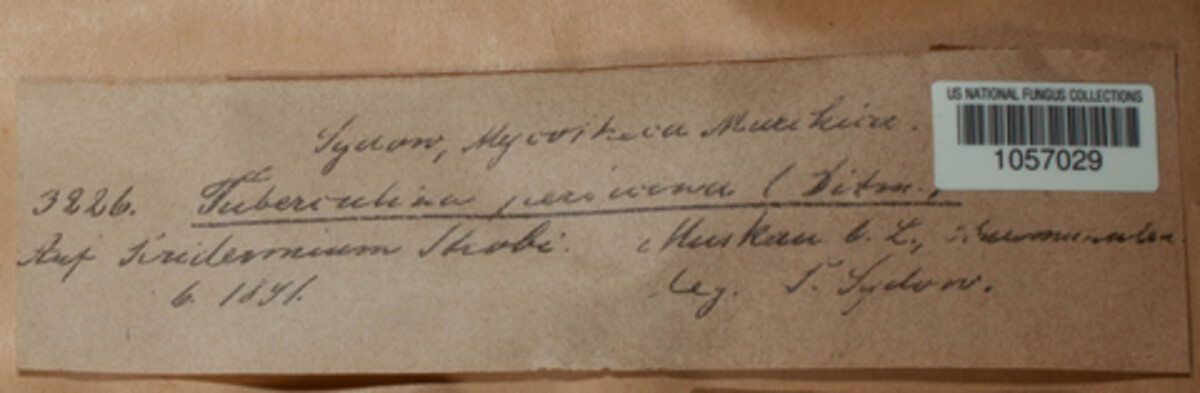 US NATIONAL FUNGUS COLLECTIONS
1057029
Sydow, Mycotheca Marchica.
3226. Tuberculina (Ditm.)
Auf Peridermium Strobi. Muskau O. L.,
6. 1891. leg. P. Sydow.